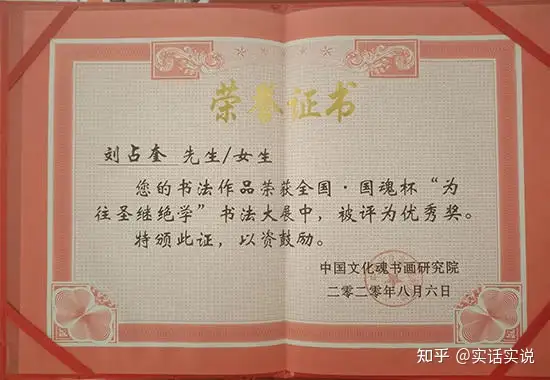 荣誉证书
刘占奎 先生/女生
您的书法作品荣获全国·国魂杯“为
往圣继绝学”书法大展中，被评为优秀奖。
特颁此证，以资鼓励。
中国文化魂书画研究院
二零二零年八月六日
知乎 @实话实说